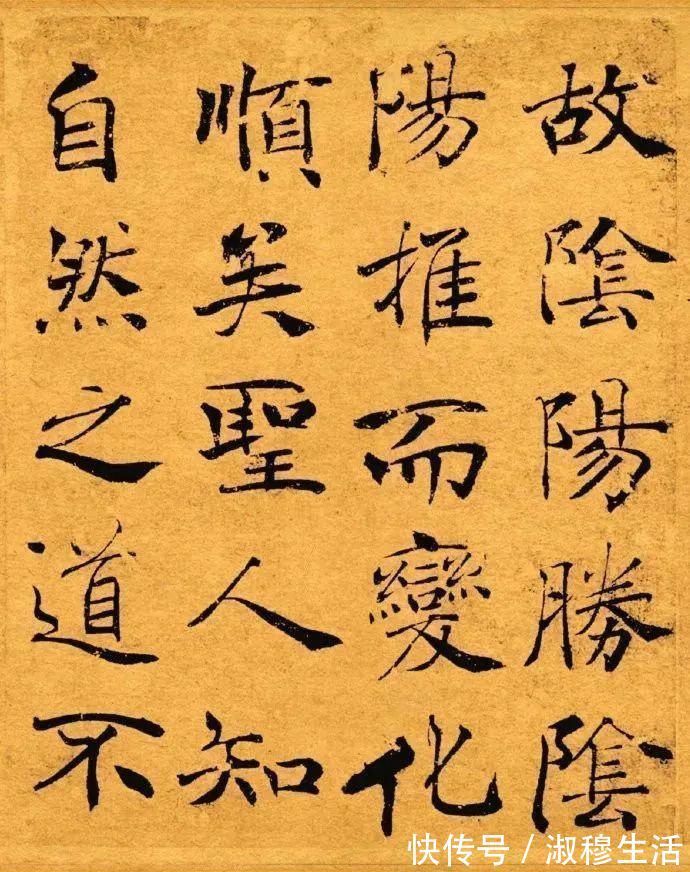 故陰陽勝陰
陽推而變化
順矣聖人知
自然之道不
快传号 / 淑穆生活